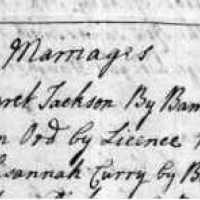 Marriages
aret Jackson By Ban
n Ord by Licence
usannah Curry by B